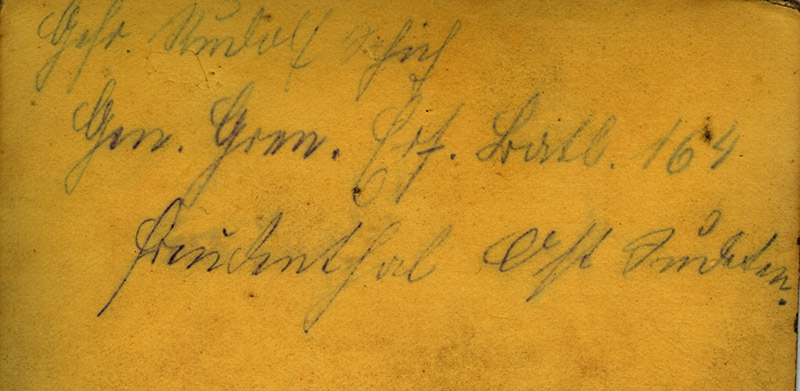 Gefr Rudolf Schich
Gen. Gren. Ers. Batl. 164
Freudenthal Ost Sudeten.